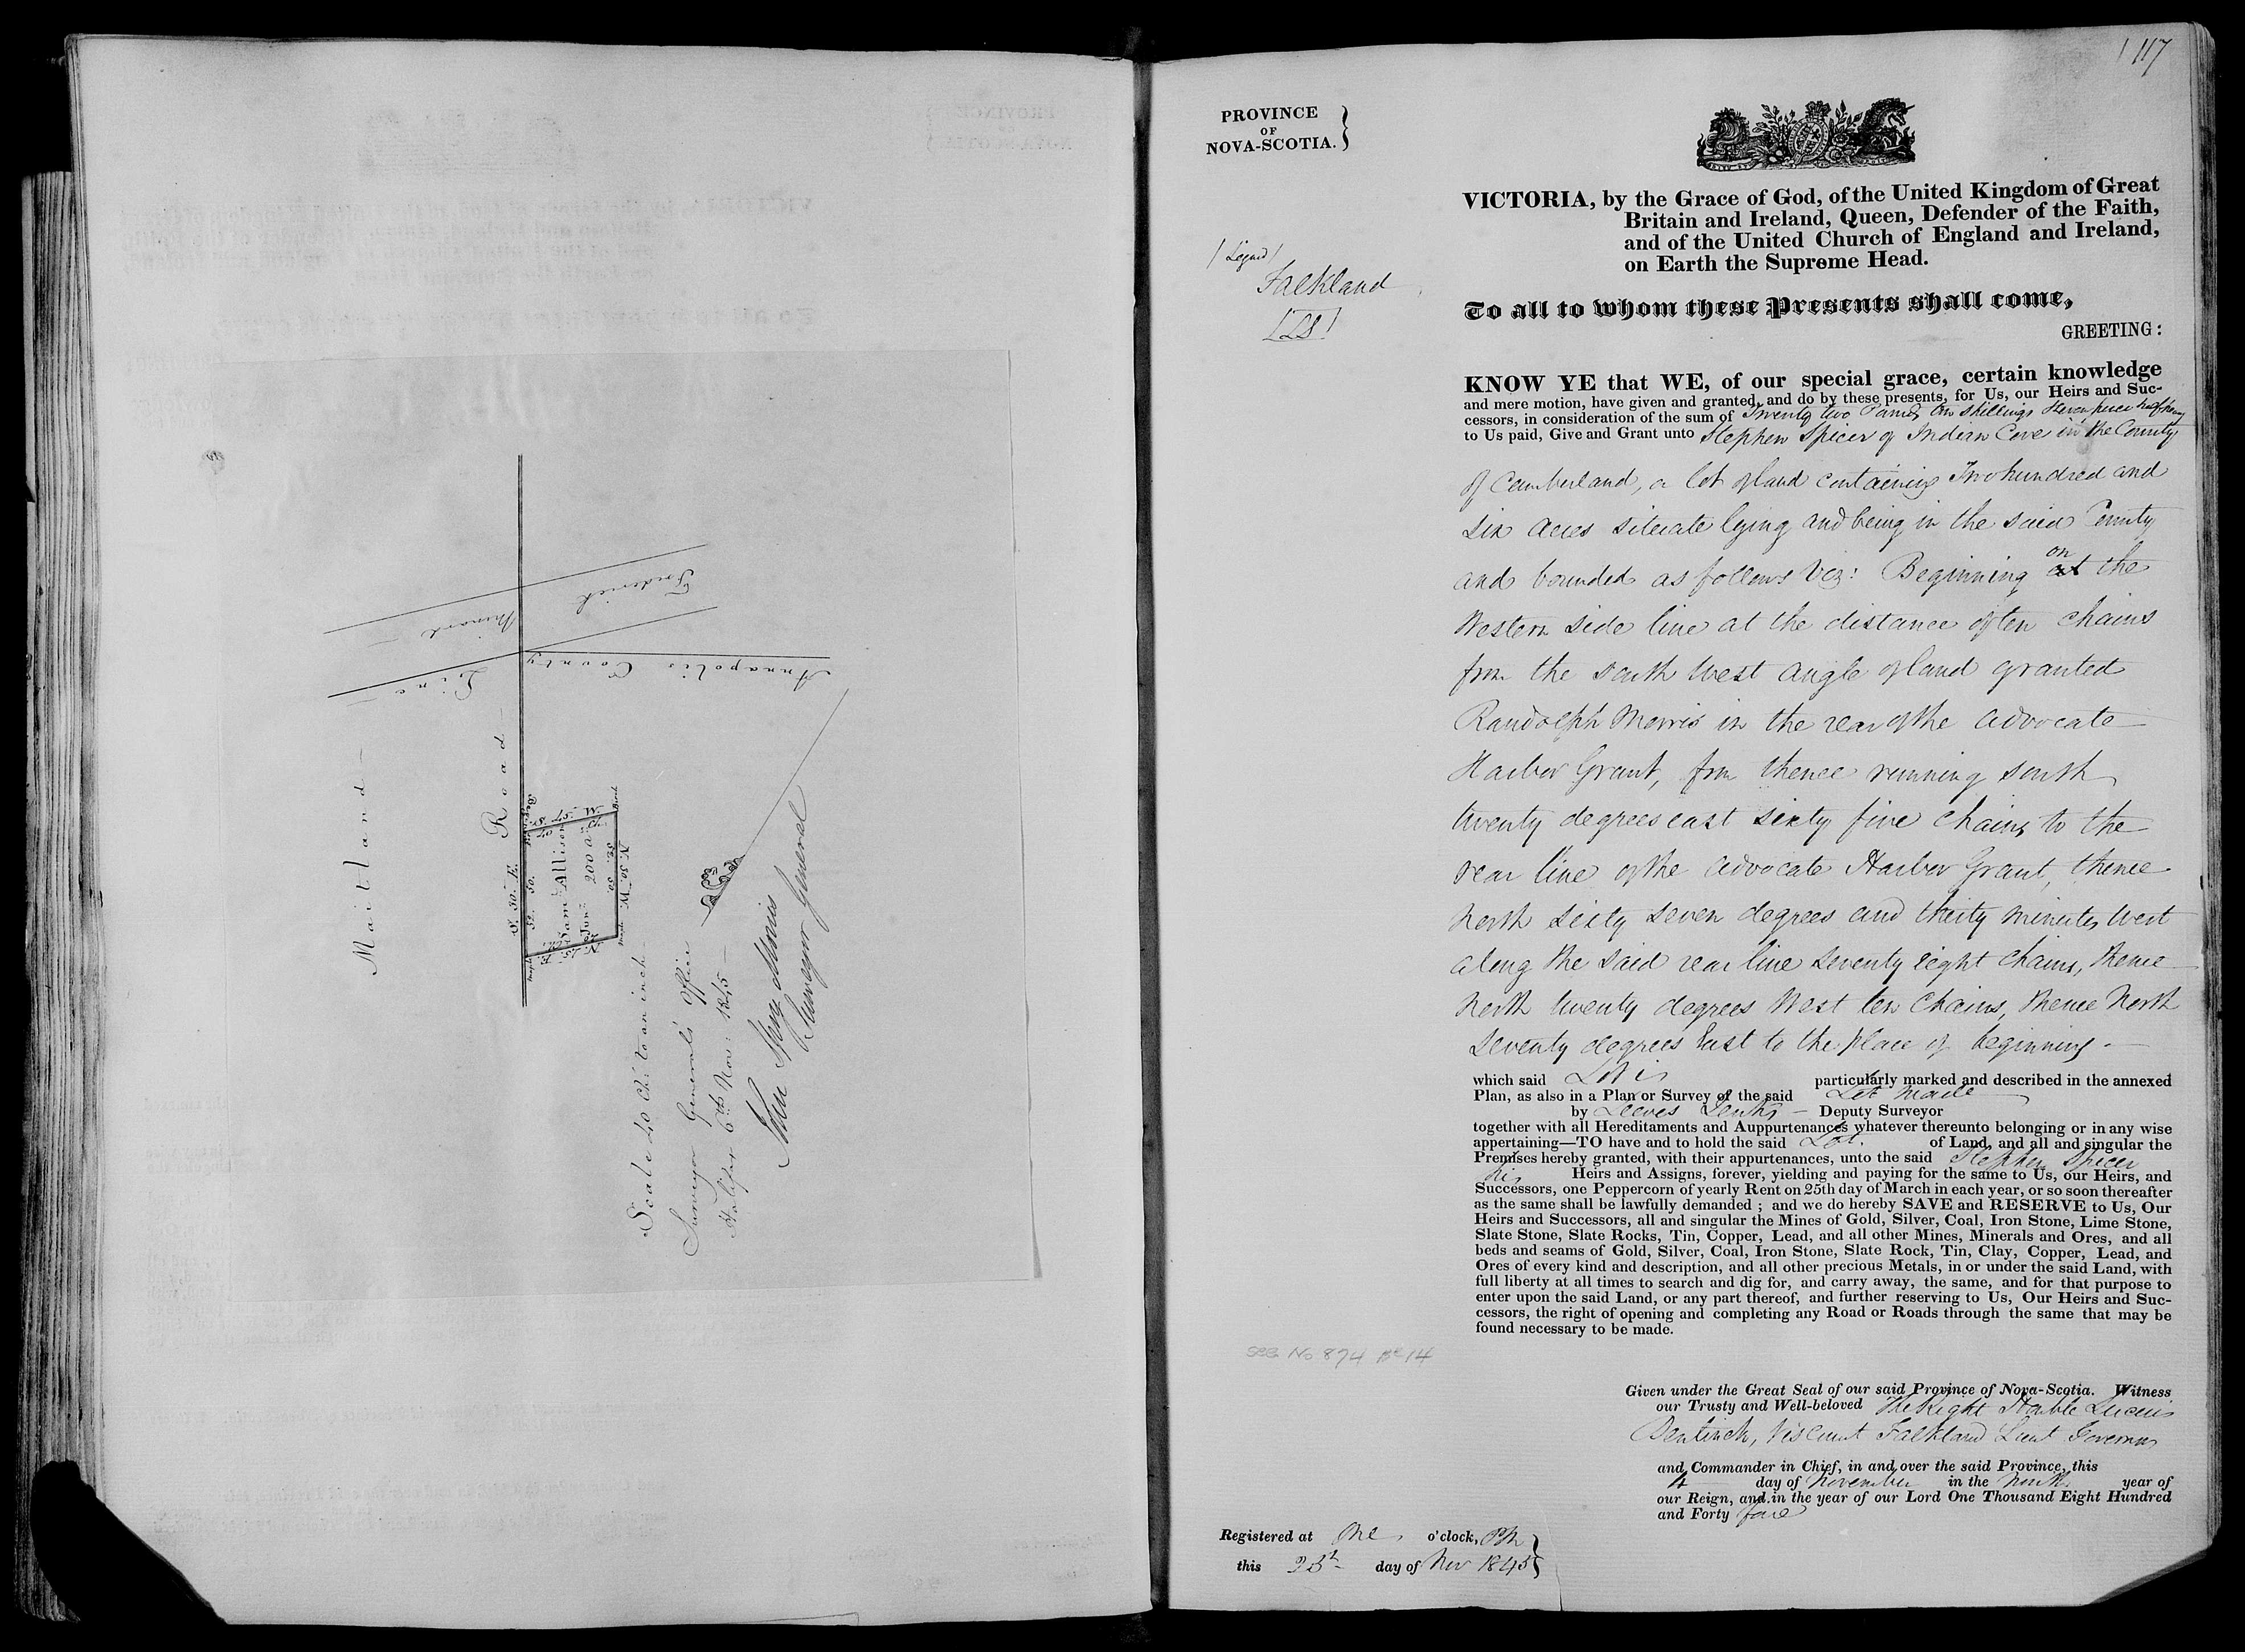 Frederick
Primark
Annapolis County
Line
Maitland
Road
S. 30. E.
52. 50.
Sam. Allison
Jun.
200 a.
N. 30. W.
52. 50
Scale 40 Ch. to an inch
Surveyor General's Office
Halifax 6th Nov: 1845
John Spry Morris
Surveyor General
117
PROVINCE
OF
NOVA-SCOTIA.
VICTORIA, by the Grace of God, of the United Kingdom of Great
Britain and Ireland, Queen, Defender of the Faith,
and of the United Church of England and Ireland,
on Earth the Supreme Head.
/ Signed /
Falkland
[LS]
To all to whom these Presents shall come,
GREETING:
KNOW YE that WE, of our special grace, certain knowledge
and mere motion, have given and granted, and do by these presents, for Us, our Heirs and Suc-
cessors, in consideration of the sum of Twenty two Pounds shillings pence half penny
to Us paid, Give and Grant unto Stephen Spicer of Indian Cove in the County
of Cumberland, a lot of land containing Two hundred and
Six acres situate lying and being in the said County
and bounded as follows viz: Beginning on at the
Western side line at the distance of ten chains
from the South West angle of land granted
Randolph Morris in the rear of the Advocate
Harbor Grant, from thence running South
twenty degrees east sixty five chains to the
rear line of the Advocate Harbor Grant, thence
North sixty seven degrees and thirty minutes West
along the said rear line seventy eight chains, thence
North twenty degrees West ten chains, thence North
seventy degrees East to the place of beginning -
which said Lot is particularly marked and described in the annexed
Plan, as also in a Plan or Survey of the said Lot made
by Deputy Surveyor
together with all Hereditaments and Auppurtenances whatever thereunto belonging or in any wise
appertaining—TO have and to hold the said Lot. of Land, and all and singular the
Premises hereby granted, with their appurtenances, unto the said Stephen Spicer
his Heirs and Assigns, forever, yielding and paying for the same to Us, our Heirs, and
Successors, one Peppercorn of yearly Rent on 25th day of March in each year, or so soon thereafter
as the same shall be lawfully demanded ; and we do hereby SAVE and RESERVE to Us, Our
Heirs and Successors, all and singular the Mines of Gold, Silver, Coal, Iron Stone, Lime Stone,
Slate Stone, Slate Rocks, Tin, Copper, Lead, and all other Mines, Minerals and Ores, and all
beds and seams of Gold, Silver, Coal, Iron Stone, Slate Rock, Tin, Clay, Copper, Lead, and
Ores of every kind and description, and all other precious Metals, in or under the said Land, with
full liberty at all times to search and dig for, and carry away, the same, and for that purpose to
enter upon the said Land, or any part thereof, and further reserving to Us, Our Heirs and Suc-
cessors, the right of opening and completing any Road or Roads through the same that may be
found necessary to be made.
see No 874 Bk 14
Given under the Great Seal of our said Province of Nova-Scotia. Witness
our Trusty and Well-beloved The Right Honble Lucius
Bentinck, Viscount Falkland Lieut Governor
and Commander in Chief, in and over the said Province, this
4 day of November in the Ninth year of
our Reign, and in the year of our Lord One Thousand Eight Hundred
and Forty five
Registered at One o'clock, PM
this 25th day of Nov 1845